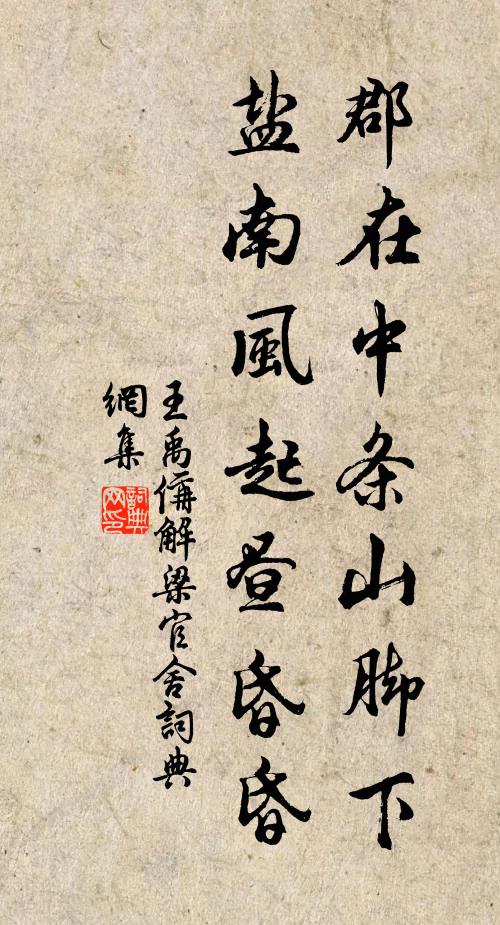 郡在中条山脚下
盐南風起昼昏昏
王禹偁解梁官舍詞典
網集
詞典网印